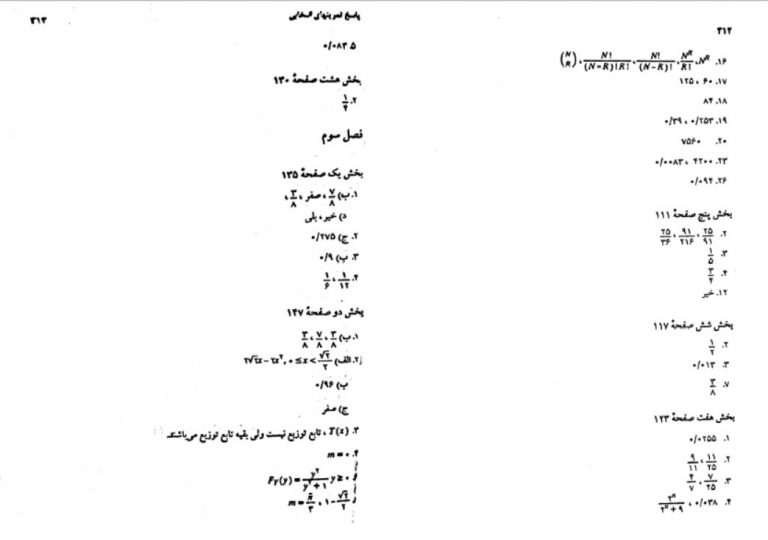 ۳۱۲
۱۶. N^R، N^R/R!، N!/(N−R)!، N!/((N−R)!R!)، (N R)
۱۷. ۶۰، ۱۲۵
۱۸. ۸۴
۱۹. ۰/۲۵۳، ۰/۳۹
۲۰. ۷۵۶۰
۲۳. ۴۲۰۰، ۰/۰۰۸۳
۲۶. ۰/۰۹۴
بخش پنج صفحهٔ ۱۱۱
۲. ۲۵/۹۱، ۹۱/۲۱۶، ۲۵/۳۶
۳. ۱/۵
۴. ۳/۴
۱۲. خیر
بخش شش صفحهٔ ۱۱۷
۲. ۱/۲
۳. ۰/۰۱۳
۷. ۳/۸
بخش هفت صفحهٔ ۱۲۳
۱. ۰/۰۲۵۵
۲. ۱۱/۲۵، ۹/۱۱
۳. ۷/۲۵، ۴/۷
۴. ۰/۰۳۸، ۲^n/(۲^n+۹)
پاسخ تمرینهای انتخابی ۳۱۳
۵ ۰/۰۸۳
بخش هشت صفحهٔ ۱۳۰
۲. ۱/۴
فصل سوم
بخش یک صفحهٔ ۱۳۵
۱. ب) ۷/۸، صفر، ۳/۸،
د) خیر، بلی
۲. ج) ۰/۲۷۵
۳. ب) ۰/۹
۴. ۱/۱۲، ۱/۶
بخش دو صفحهٔ ۱۴۷
۱. ب) ۳/۸، ۷/۸، ۳/۸
۲. الف) ۲√۲x − ۲x^۲, ۰ ≤ x < √۲/۲
ب) ۰/۹۶
ج) صفر
۳. T(x)، تابع توزیع نیست ولی بقیه تابع توزیع می‌باشند.
۴. m = ۰
F_Y(y) = y^۲/(y^۲+۱) y ≥ ۰
m = π/۳، ۱ − √۲/۲